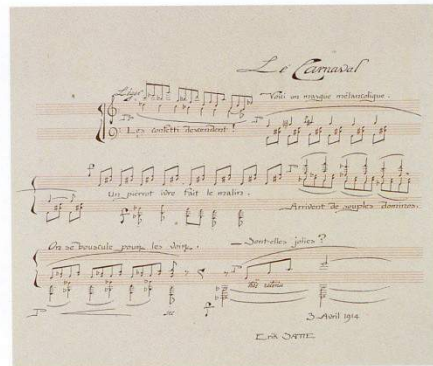 Le Carnaval
Léger
Voici un masque mélancolique.
Les confetti descendent !
Un pierrot ivre fait le malin.
Arrivent de souples dominos.
On se bouscule pour les voir.
— Sont-elles jolies ?
3 Avril 1914
Erik SATIE